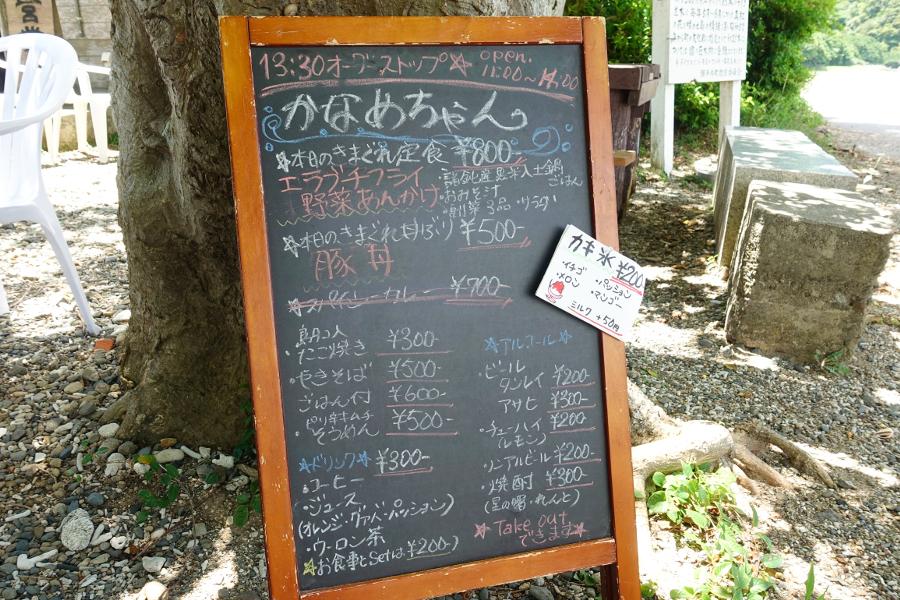 13:30オーダーストップ☆ open. 11:00~14:00
かなめちゃん
☆本日のきまぐれ定食 ¥800-
エラブチフライ
野菜あんかけ
ごはん
・おみそ汁
・副菜3品・サラダ
☆本日のきまぐれ丼ぶり ¥500-
豚丼
☆スパイシーカレー ¥700-
カキ氷 ¥200
・イチゴ ・パッション
・メロン ・マンゴー
ミルク +50円
・たこ焼き ¥300-
・やきそば ¥500-
ごはん付 ¥600-
・ピリ辛キムチそうめん ¥500-
☆ドリンク☆ ¥300-
・コーヒー
・ジュース
(オレンジ・グァバ・パッション)
・ウーロン茶
☆お食事とSetは、¥200-)
☆アルコール☆
・ビール
タンレイ ¥200-
アサヒ ¥300-
・チューハイ ¥200-
(レモン)
・ノンアルビール ¥200-
・焼酎 ¥300-
(星の曙・れんと)
☆Take out
できます☆